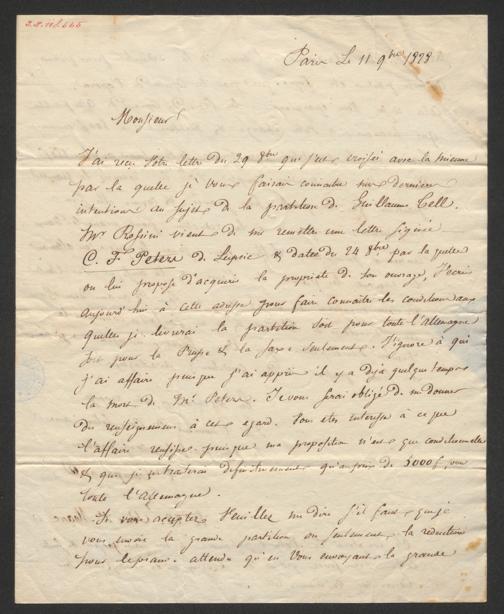 Paris Le 11 9bre 1828
Monsieur
J'ai reçu Votre lettre du 29 8bre qui s'est croisée avec la mienne
par la quelle je vous faisais connaitre mes dernieres
intentions au sujet de la partition de Guillaume Tell.
Mr Rossini vient de me remettre une lettre signée
C. F. Peters de Lepsic & datée du 24 8bre par la quelle
on lui propose d'acquerir la propriété de son ouvrage, J'ecris
aujourd'hui à cette adresse pour faire connaitre les conditions aux
quelles je livrerai la partition soit pour toute l'Allemagne
soit pour la Prusse & la Saxe seulement. J'ignore à qui
j'ai affaire puisque j'ai appris il y a deja quelque temps
la mort de Mr Peters. Je vous serai obligé de me donner
des renseignemens à cet egard. Vous etes interessé à ce que
l'affaire reussisse puisque ma proposition n'est que conditionnelle
& que je ne traiterai definitivement qu'au prix de 5000f, pour
toute l'Allemagne.
Si vous acceptez Veuillez me dire s'il faut que je
vous envoie la grande partition ou seulement la reduction
pour le piano. attendu qu'en Vous envoyant la grande